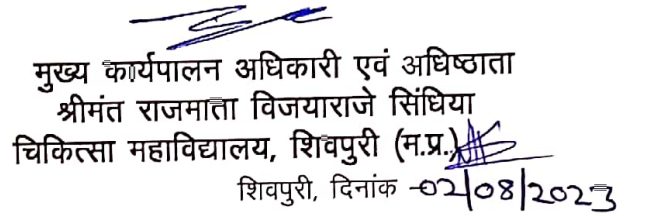 मुख्य कार्यपालन अधिकारी एवं अधिष्ठाता
श्रीमंत राजमाता विजयाराजे सिंधिया
चिकित्सा महाविद्यालय, शिवपुरी (म.प्र.)
शिवपुरी, दिनांक -02/08/2023